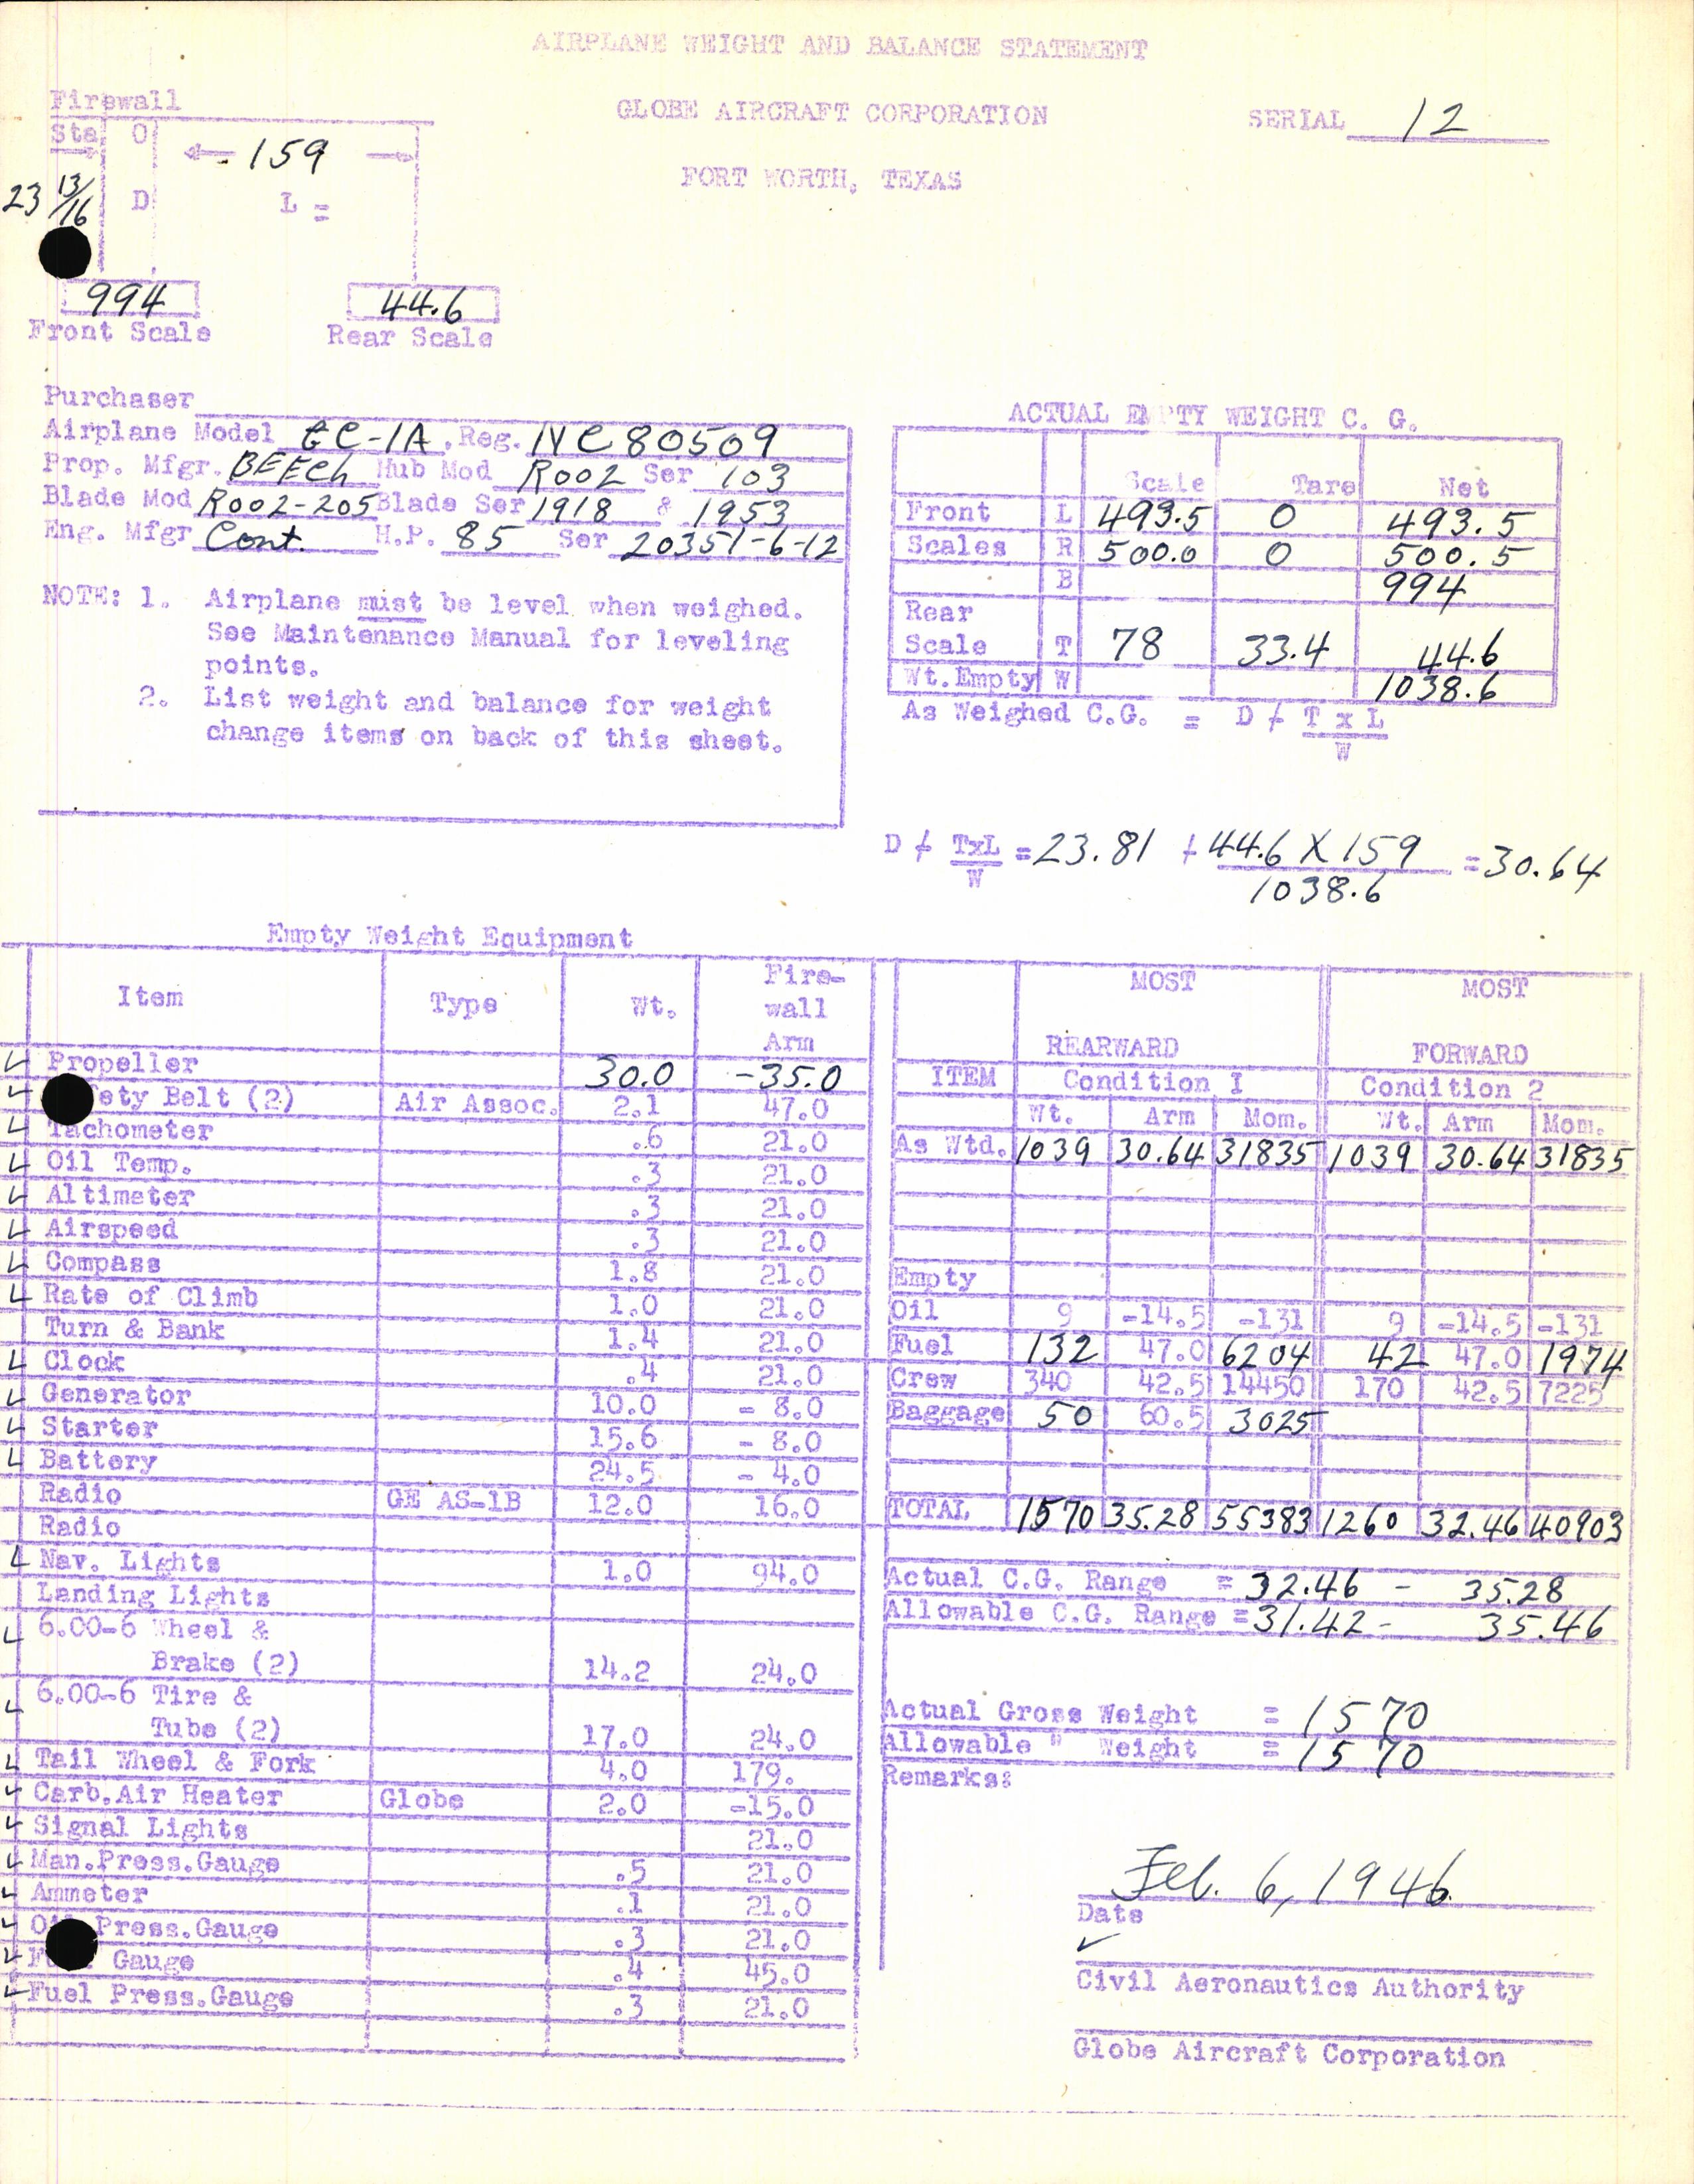 AIRPLANE WEIGHT AND BALANCE STATEMENT
GLOBE AIRCRAFT CORPORATION
SERIAL 12
FORT WORTH, TEXAS
Firewall
Sta 0
159
23 13/16 D L =
994 44.6
Front Scale Rear Scale
Purchaser
Airplane Model GC-1A, Reg. NC80509
Prop. Mfgr. BEECh Hub Mod R002 Ser 103
Blade Mod R002-205 Blade Ser 1918 & 1953
Eng. Mfgr Cont. H.P. 85 Ser 20351-6-12
NOTE: 1. Airplane must be level when weighed.
See Maintenance Manual for leveling
points.
2. List weight and balance for weight
change items on back of this sheet.
ACTUAL EMPTY WEIGHT C. G.
Scale Tare Net
Front L 493.5 0 493.5
Scales R 500.0 0 500.5
B 994
Rear
Scale T 78 33.4 44.6
Wt. Empty W 1038.6
As Weighed C.G. = D + T x L
W
D + TxL = 23.81 + 44.6 X 159 = 30.64
W 1038.6
Empty Weight Equipment
Item Type Wt. Fire-
wall
Arm
Propeller 30.0 -35.0
ety Belt (2) Air Assoc. 2.1 47.0
Tachometer .6 21.0
Oil Temp. .3 21.0
Altimeter .3 21.0
Airspeed .3 21.0
Compass 1.8 21.0
Rate of Climb 1.0 21.0
Turn & Bank 1.4 21.0
Clock .4 21.0
Generator 10.0 - 8.0
Starter 15.6 - 8.0
Battery 24.5 - 4.0
Radio GE AS-1B 12.0 16.0
Radio
Nav. Lights 1.0 94.0
Landing Lights
6.00-6 Wheel &
Brake (2) 14.2 24.0
6.00-6 Tire &
Tube (2) 17.0 24.0
Tail Wheel & Fork 4.0 179.
Carb.Air Heater Globe 2.0 -15.0
Signal Lights 21.0
Man.Press.Gauge .5 21.0
Ammeter .1 21.0
Oil Press.Gauge .3 21.0
F Gauge .4 45.0
Fuel Press.Gauge .3 21.0
MOST MOST
REARWARD FORWARD
ITEM Condition I Condition 2
Wt. Arm Mom. Wt. Arm Mom.
As Wtd. 1039 30.64 31835 1039 30.64 31835
Empty
Oil 9 -14.5 -131 9 -14.5 -131
Fuel 132 47.0 6204 42 47.0 1974
Crew 340 42.5 14450 170 42.5 7225
Baggage 50 60.5 3025
TOTAL 1570 35.28 55383 1260 32.46 40903
Actual C.G. Range = 32.46 - 35.28
Allowable C.G. Range = 31.42 - 35.46
Actual Gross Weight = 1570
Allowable " Weight = 1570
Remarks:
Feb. 6, 1946
Date
Civil Aeronautics Authority
Globe Aircraft Corporation